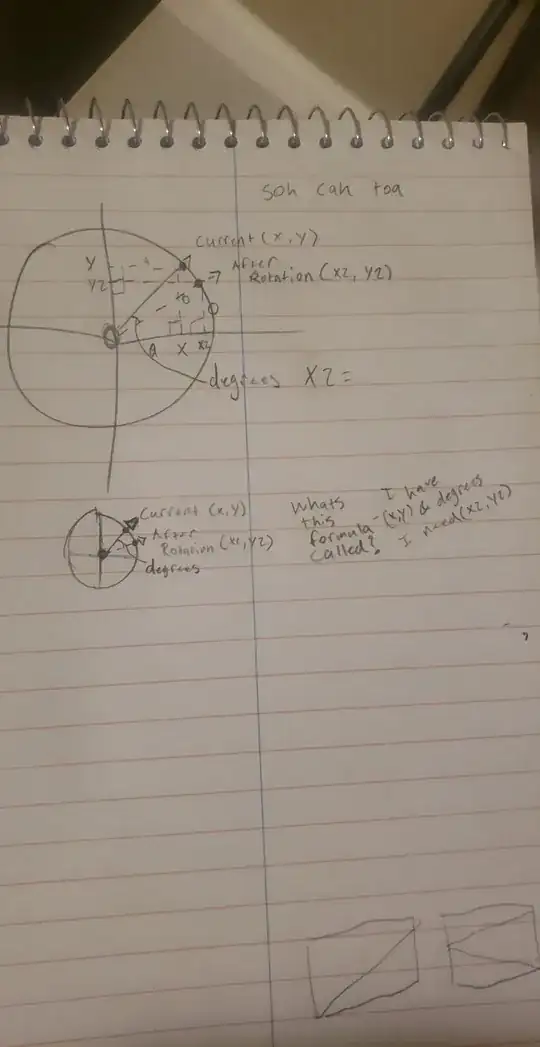 soh cah toa
current (x, y)
After
Rotation (x2, y2)
Y
Y2
θ
X
x2
degrees X2 =
Current (x, y)
After
Rotation (x2, y2)
degrees
Whats
this
formula
called?
I have
(x,y) & degrees
I need (x2, y2)